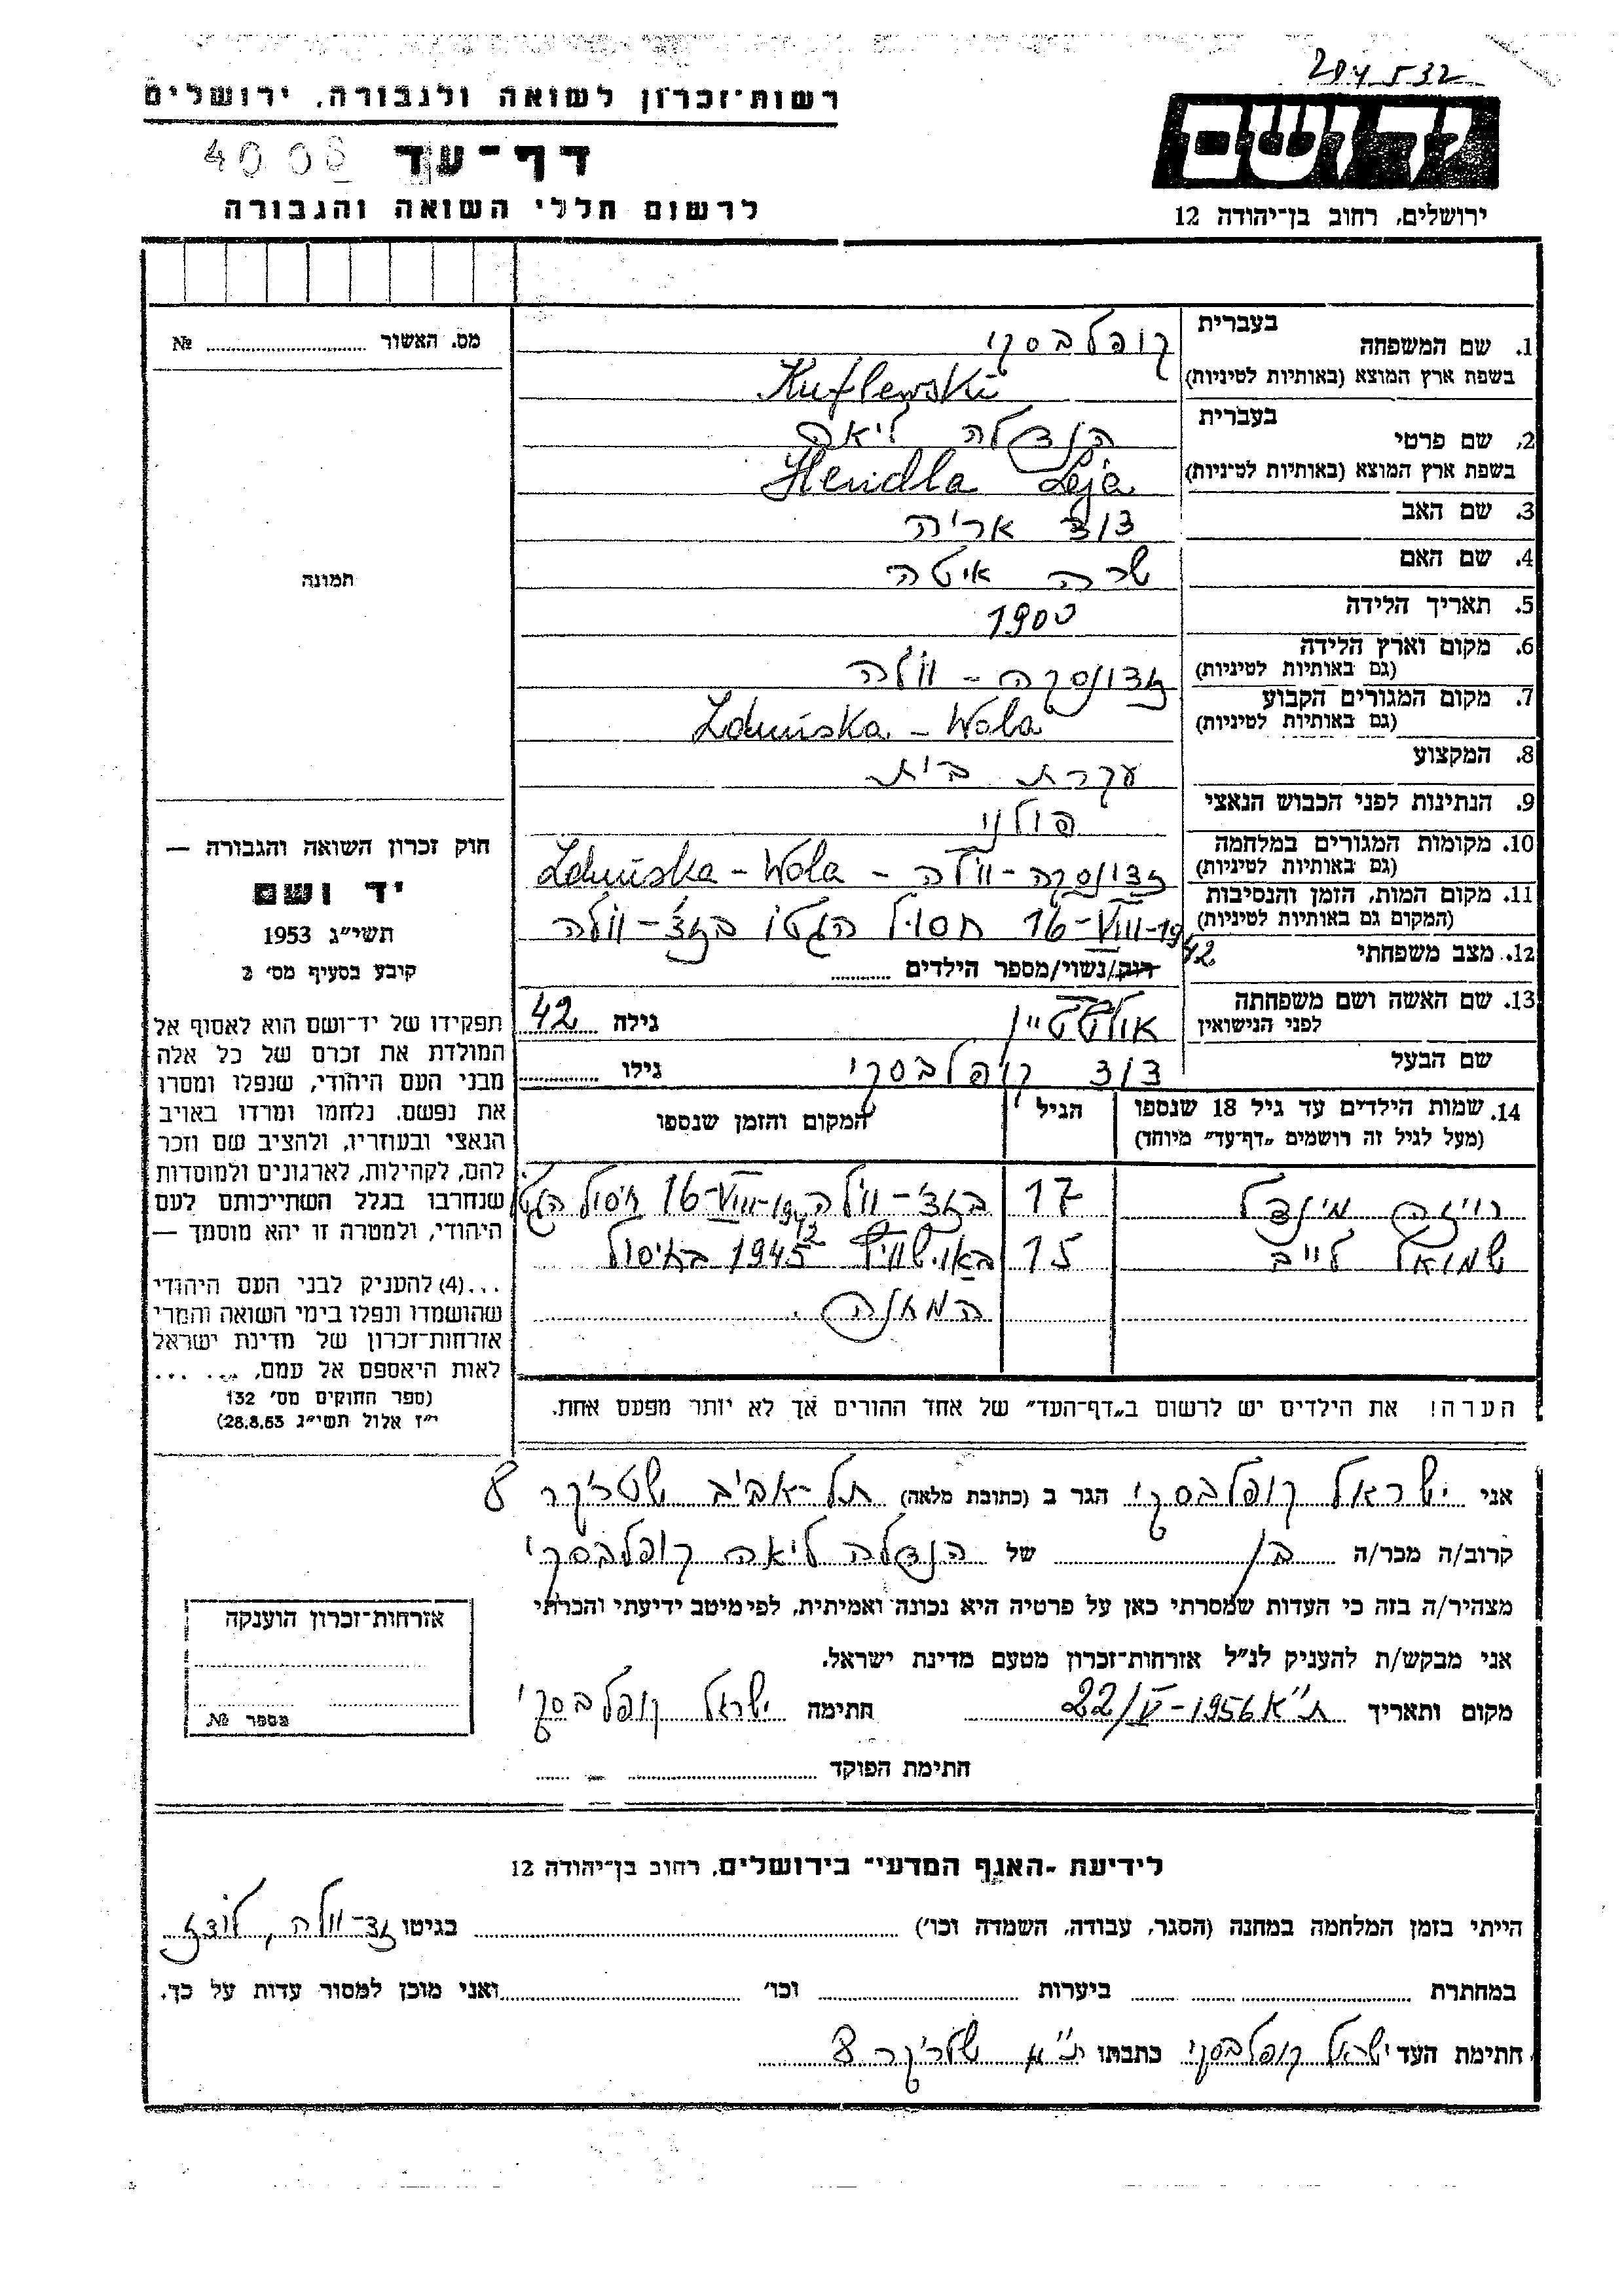 204532
רשות־זכרון לשואה ולגבורה, ירושלים
דף־עד
4006
לרשום חללי השואה והגבורה
יד ושם
ירושלים, רחוב בן־יהודה 12
מס. האשור № ........
תמונה
חוק זכרון השואה והגבורה —
יד ושם
תשי״ג 1953
קובע בסעיף מס׳ 2
תפקידו של יד־ושם הוא לאסוף אל
המולדת את זכרם של כל אלה
מבני העם היהודי, שנפלו ומסרו
את נפשם, נלחמו ומרדו באויב
הנאצי ובעוזריו, ולהציב שם וזכר
להם, לקהילות, לארגונים ולמוסדות
שנחרבו בגלל השתייכותם לעם
היהודי, ולמטרה זו יהא מוסמך —
...(4) להעניק לבני העם היהודי
שהושמדו ונפלו בימי השואה והמרי
אזרחות־זכרון של מדינת ישראל
לאות היאספם אל עמם. ... ...
(ספר החוקים מס׳ 132
י״ז אלול תשי״ג 28.8.53)
1. שם המשפחה בעברית קופלבסקי
בשפת ארץ המוצא (באותיות לטיניות) Kuflewski
2. שם פרטי בעברית הנדלה ליאה
בשפת ארץ המוצא (באותיות לטיניות) Hendla Leja
3. שם האב דוד אריה
4. שם האם שרה איטה
5. תאריך הלידה 1900
6. מקום וארץ הלידה (גם באותיות לטיניות) זדונסקה - וולה
7. מקום המגורים הקבוע (גם באותיות לטיניות) Zduńska - Wola
8. המקצוע עקרת בית
9. הנתינות לפני הכבוש הנאצי פולני
10. מקומות המגורים במלחמה (גם באותיות לטיניות) זדונסקה - וולה - Zduńska - Wola
11. מקום המות, הזמן והנסיבות (המקום גם באותיות לטיניות) 16-VIII-1942 חסול הגטו בזד׳ - וולה
12. מצב משפחתי רוק/נשוי/מספר הילדים ........
13. שם האשה ושם משפחתה לפני הנישואין גילה 42
שם הבעל דוד קופלבסקי גילו ........
14. שמות הילדים עד גיל 18 שנספו (מעל לגיל זה רושמים „דף־עד״ מיוחד) הגיל המקום והזמן שנספו
רויזה מינדל 17 בזד׳ - וולה 16-VIII-1942 חיסול הגטו
שמואל לייב 15 באושוויץ 1945 בחיסול
המחנה.
הערה! את הילדים יש לרשום ב„דף־העד״ של אחד ההורים אך לא יותר מפעם אחת.
אני ישראל קופלבסקי הגר ב (כתובת מלאה) תל-אביב 8
קרוב/ה מכר/ה בן של הנדלה ליאה קופלבסקי
מצהיר/ה בזה כי העדות שמסרתי כאן על פרטיה היא נכונה ואמיתית, לפי מיטב ידיעתי והכרתי
אני מבקש/ת להעניק לנ״ל אזרחות־זכרון מטעם מדינת ישראל.
מקום ותאריך ת״א 22/V-1956 חתימה ישראל קופלבסקי
חתימת הפוקד
אזרחות־זכרון הוענקה
מספר №
לידיעת „האגף המדעי״ בירושלים, רחוב בן־יהודה 12
הייתי בזמן המלחמה במחנה (הסגר, עבודה, השמדה וכו׳) ........ בגיטו זד - וולה, לודז
במחתרת ........ ביערות ........ וכו׳ ........ ואני מוכן למסור עדות על כך.
חתימת העד ישראל קופלבסקי כתבתו ת״א 8